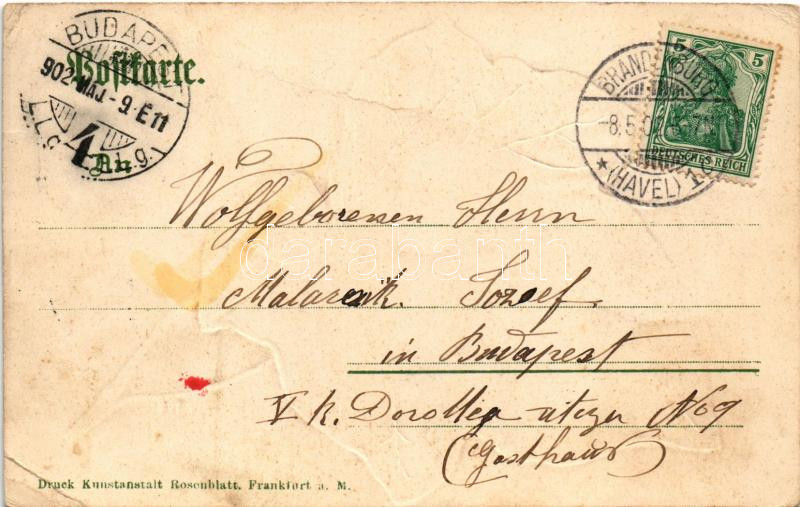 BUDAPE
902 MAJ - 9. E 11
4
Postkarte.
An
BRANDENBURG
-8.5.
* (HAVEL)
5 5
DEUTSCHES REICH
Wolfgeborensen Herrn
darabanth
Malarcsik. Jozsef.
in Budapest
V k. Dorottya utcza No 9
(Gasthaus)
Druck Kunstanstalt Rosenblatt, Frankfurt a. M.